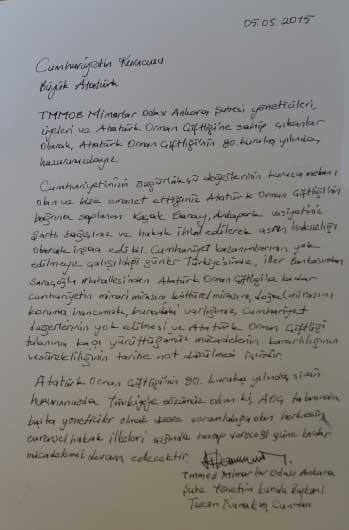 05.05.2015
Cumhuriyetin Kurucusu
Büyük Atatürk
TMMOB Mimarlar Odası Ankara Şubesi yöneticileri,
üyeleri ve Atatürk Orman Çiftliği'ne sahip çıkanlar
olarak, Atatürk Orman Çiftliği'nin 90. kuruluş yılında,
huzurunuzdayız.
Cumhuriyetimizin özgürlükçü değerlerinin kurucu mekanı
olan ve bize emanet ettiğiniz Atatürk Orman Çiftliği'nin
bağrına saplanan Kaçak Saray, Ankapark vasiyetiniz
şartlı bağışınız ve hukuk ihlal edilerek asrın hukuksuzluğu
olarak inşaa edildi. Cumhuriyet kazanımlarının yok
edilmeye çalışıldığı günler Türkiye'sinde, İller Bankasından
Saraçoğlu Mahallesi'nden Atatürk Orman Çiftliği'ne kadar
Cumhuriyetin mimari mirasını, kültürel mirasını, doğal mirasını
koruma inancımızla, buradaki varlığımız, Cumhuriyet
değerlerinin yok edilmesi ve Atatürk Orman Çiftliği
talanına karşı yürüttüğümüz mücadelenin kararlılığının
ve sürekliliğinin tarihe not düşülmesi içindir.
Atatürk Orman Çiftliği'nin 90. kuruluş yılında, sizin
huzurunuzda Türkiye'ye sözümüz olsun ki, AOÇ talanında
başta yöneticiler olmak üzere sorumluluğu olan herkesin
evrensel hukuk ilkeleri ışığında hesap vereceği güne kadar
mücadelemiz devam edecektir.
TMMOB Mimarlar Odası Ankara
Şube Yönetim Kurulu Başkanı
Tezcan Karakuş Candan